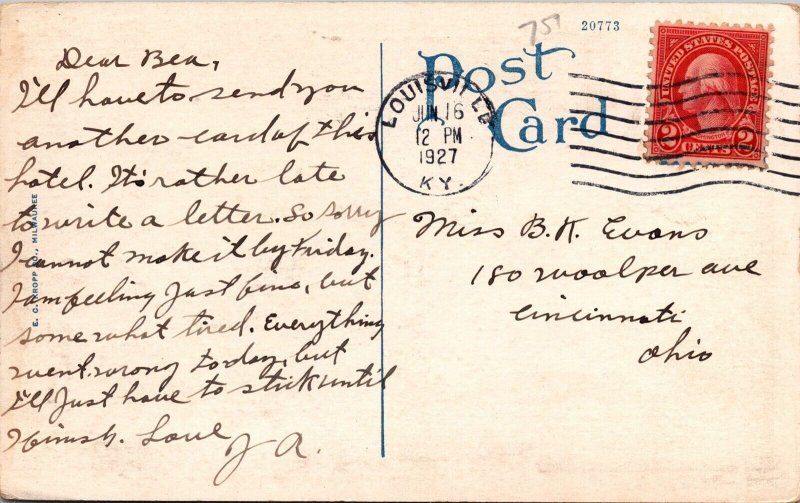 Dear Bea,
I'll have to send you
another card of this
hotel. It's rather late
to write a letter. So sorry
I cannot make it by Friday.
I am feeling just fine, but
somewhat tired. Everything
went wrong today, but
I'll just have to stick until
I finish. Love
J A.
E. C. KROPP CO., MILWAUKEE
20773
75¢
Post
Card
LOUISVILLE
JUN 16
12 PM
1927
KY.
UNITED STATES POSTAGE
2 CENTS 2
Miss B. K. Evans
180 Woolper ave
Cincinnati
Ohio